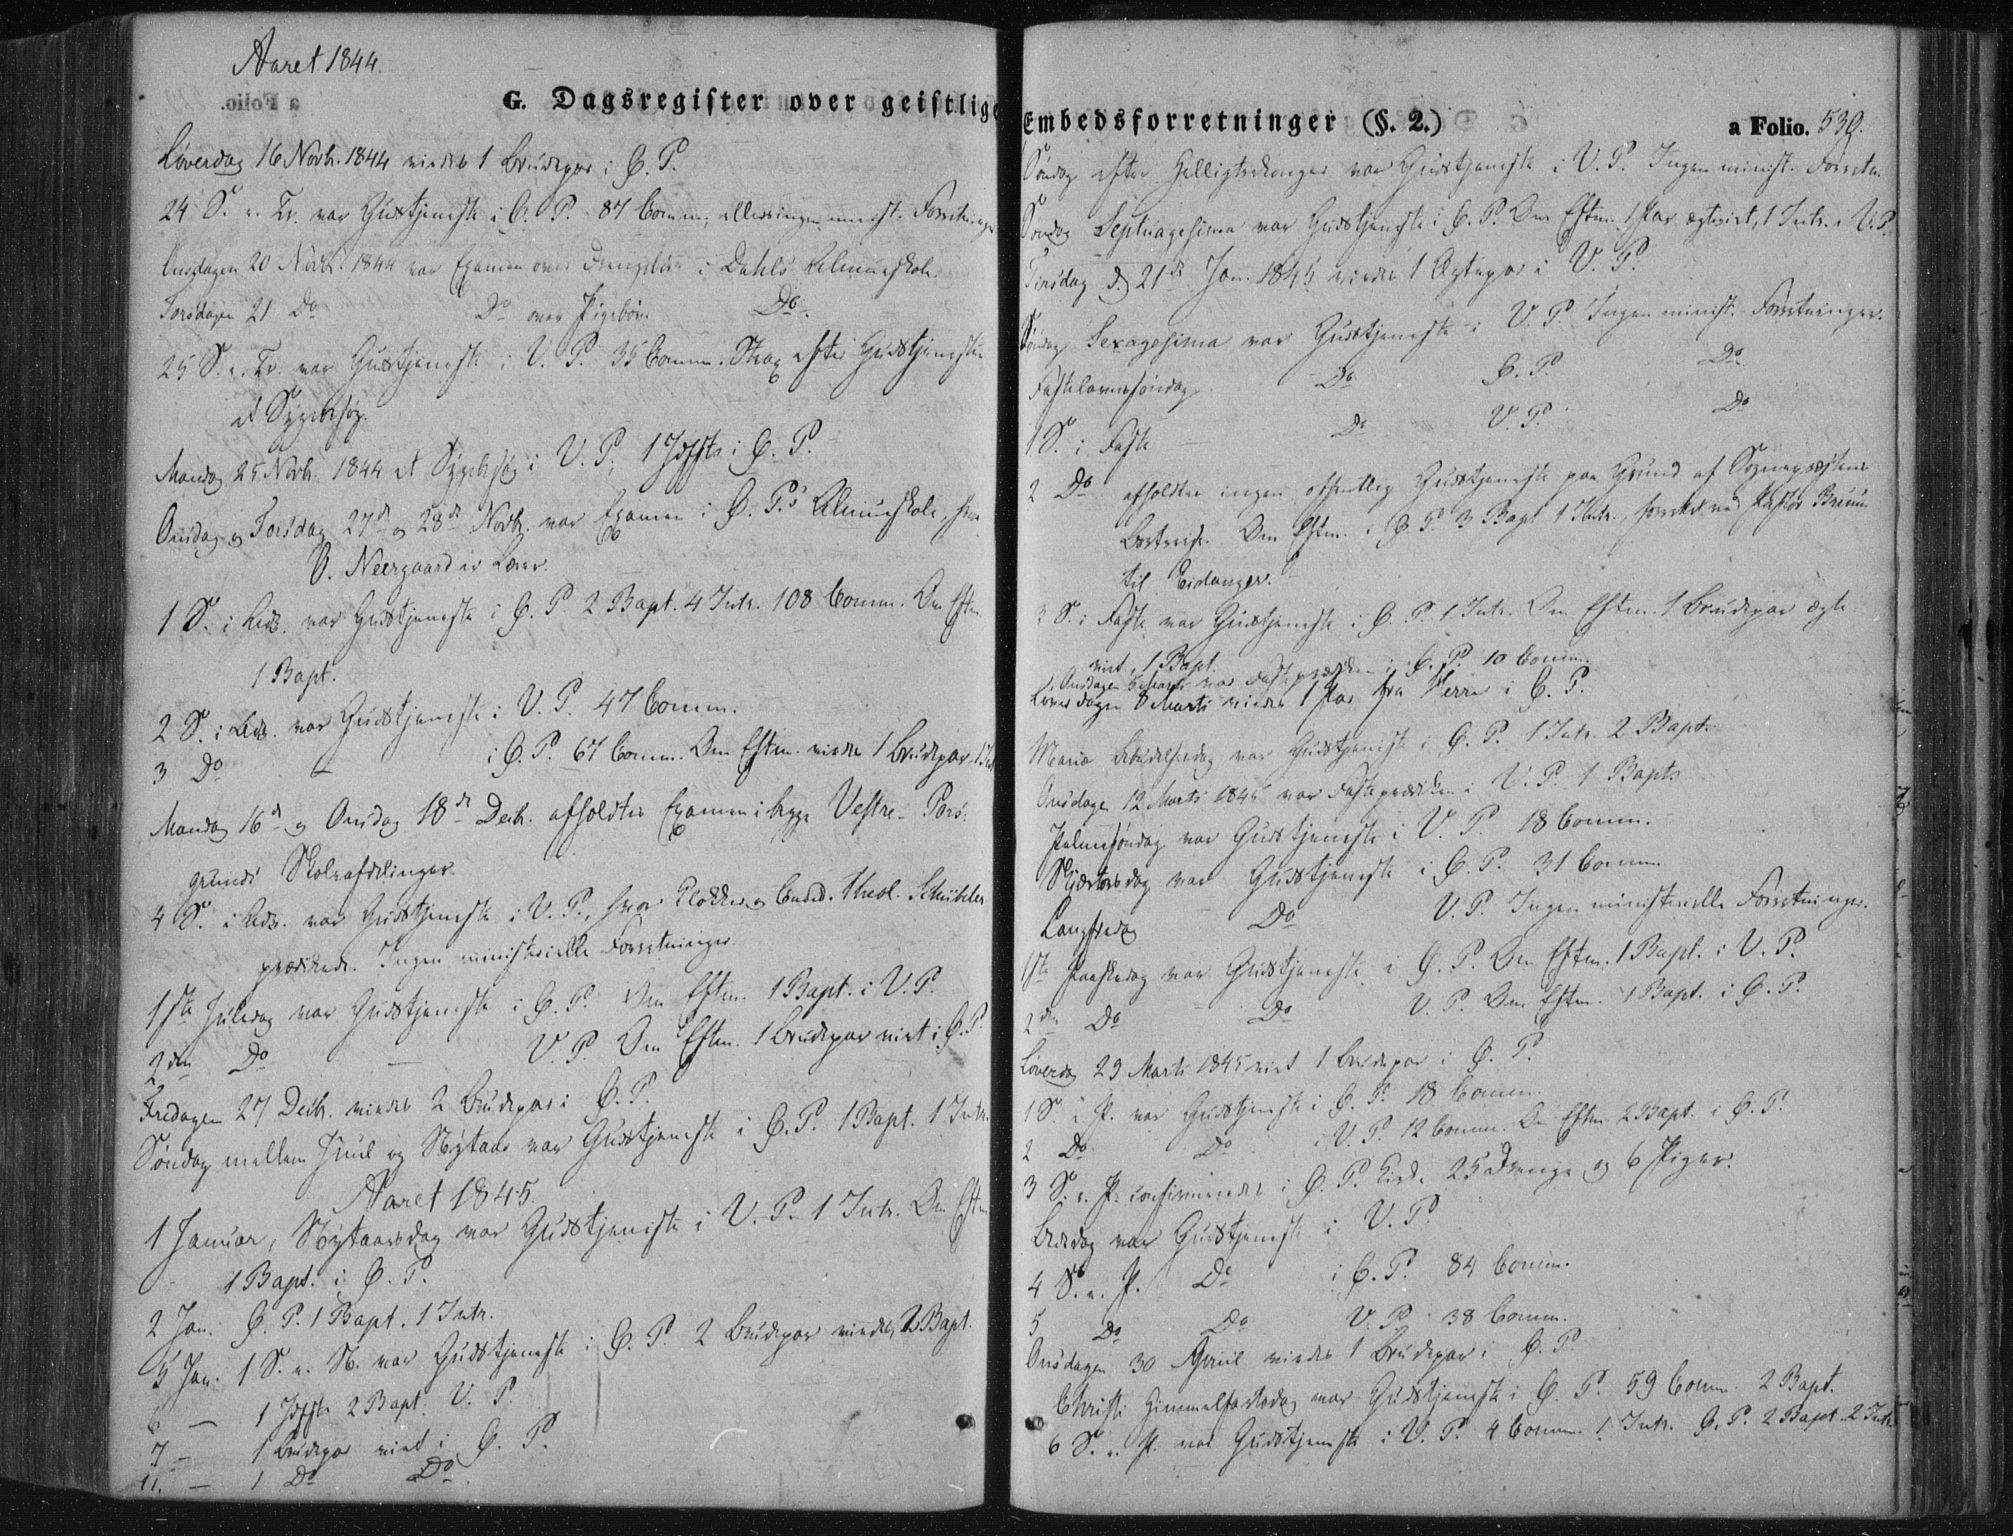 Aaret 1844.
G. Dagsregister over geistlige
Løverdag 16 Novb. 1844 viedes 1 Brudepar i Ø. P.
24 S. e. Tr. var Gudstjeneste i Ø. P. 87 Comm., ellers ingen minist. Forretninger
Onsdagen 20 Novb. 1844 var Examen over Drengebørn i Dahls Almueskole.
Torsdagen 21 Do Do over Pigebørn. Do.
25 S. e. Tr. var Gudstjeneste i V. P. 35 Comm. Strax efter Gudstjenesten
et Sygebesøg.
Mandag 25 Novb. 1844 et Sygebesøg i V. P., 1 Jdfst. i Ø. P.
Onsdag og Torsdag 27de og 28de Novb. var Examen i Ø. P.s Almueskole, hvor
O. Neergaard er Lærer.
1 S. i Adv. var Gudstjeneste i Ø. P. 2 Bapt. 4 Intr. 108 Comm. Om Eftm.
1 Bapt.
2 S. i Adv. var Gudstjeneste i V. P. 47 Comm.
3 Do - i Ø. P. 67 Comm. Om Eftm. viedes 1 Brudepar, 1 Intr.
Mandag 16de og Onsdag 18de Decb. afholdtes Examen i begge Vestre-Pors-
grunds Skoleafdelinger.
4 S. i Adv. var Gudstjeneste i V. P., hvor Klokker og Candid. Theol. Schübeler
prædikede. Ingen ministerielle Forretninger.
1ste Juledag var Gudstjeneste i Ø. P. Om Eftm. 1 Bapt. i V. P.
2den Do - V. P. Om Eftm. 1 Brudepar viet i Ø. P.
Fredagen 27 Decb. viedes 2 Brudepar i Ø. P.
Søndag mellem Juul og Nytaar var Gudstjeneste i Ø. P. 1 Bapt. 1 Intr.
Aaret 1845.
1 Januar, Nytaarsdag var Gudstjeneste i V. P. 1 Intr. Om Eftm.
1 Bapt. i Ø. P.
2 Jan. Ø. P. 1 Bapt. 1 Intr.
5 Jan. 1 S. e. N. var Gudstjeneste i Ø. P. 2 Brudepar viedes, 2 Bapt.
6 - 1 Jdfst. 2 Bapt. V. P.
7 - 1 Brudepar viet i Ø. P.
11. - 1 Do Do
Embedsforretninger (§. 2.) a Folio. 539.
Søndag efter Helligtrekonger var Gudstjeneste i V. P. Ingen minist. Forretn.
Søndag Septuagesima var Gudstjeneste i Ø. P. Om Eftm. 1 Par ægteviet, 1 Intr. i V. P.
Tirsdag d. 21de Jan. 1845 viedes 1 Ægtepar i V. P.
Søndag Sexagesima var Gudstjeneste i V. P. Ingen minist. Forretninger.
Fastelavnssøndag Do Ø. P. Do
1 S. i Faste - Do V. P. Do
2 Do afholdtes ingen offentlig Gudstjeneste paa Grund af Sognepræstens
Bortreise. Om Eftm. i Ø. P. 3 Bapt. 1 Intr., forrettet ved Pastor Bruun
til Eidanger.
3 S. i Faste var Gudstjeneste i Ø. P. 1 Intr. Om Eftm. 1 Brudepar ægte-
viet, 1 Bapt.
Onsdagen 5 Marts var Fasteprædiken i Ø. P. 10 Comm.
Løverdagen 8 Marts viedes 1 Par fra Herre i Ø. P.
Mariæ Bebudelsesdag var Gudstjeneste i Ø. P. 1 Intr. 2 Bapt.
Onsdagen 12 Marts 1845 var Fasteprædiken i V. P. 1 Bapt.
Palmesøndag var Gudstjeneste i V. P. 18 Comm.
Skjærtorsdag var Gudstjeneste i Ø. P. 31 Comm.
Langfredag Do V. P. Ingen ministerielle Forretninger.
1ste Paaskedag var Gudstjeneste i Ø. P. Om Eftm. 1 Bapt. i V. P.
2den Do Do V. P. Om Eftm. 1 Bapt. i Ø. P.
Løverdag 29 Marts 1845 viet 1 Brudepar i Ø. P.
1 S. e. P. var Gudstjeneste i Ø. P. 18 Comm.
2 Do Do i V. P. 12 Comm. Om Eftm. 2 Bapt. i Ø. P.
3 S. e. P. confirmeredes i Ø. P. Kirke 25 Drenge og 6 Piger.
Bededag var Gudstjeneste i V. P.
4 S. e. P. Do i Ø. P. 84 Comm.
5 Do Do V. P. 38 Comm.
Onsdagen 30 April viedes 1 Brudepar i Ø. P.
Christi Himmelfartsdag var Gudstjeneste i Ø. P. 59 Comm. 2 Bapt.
6 S. e. P. var Gudstjeneste i V. P. 4 Comm. 1 Intr. Ø. P. 2 Bapt. 2 Intr.